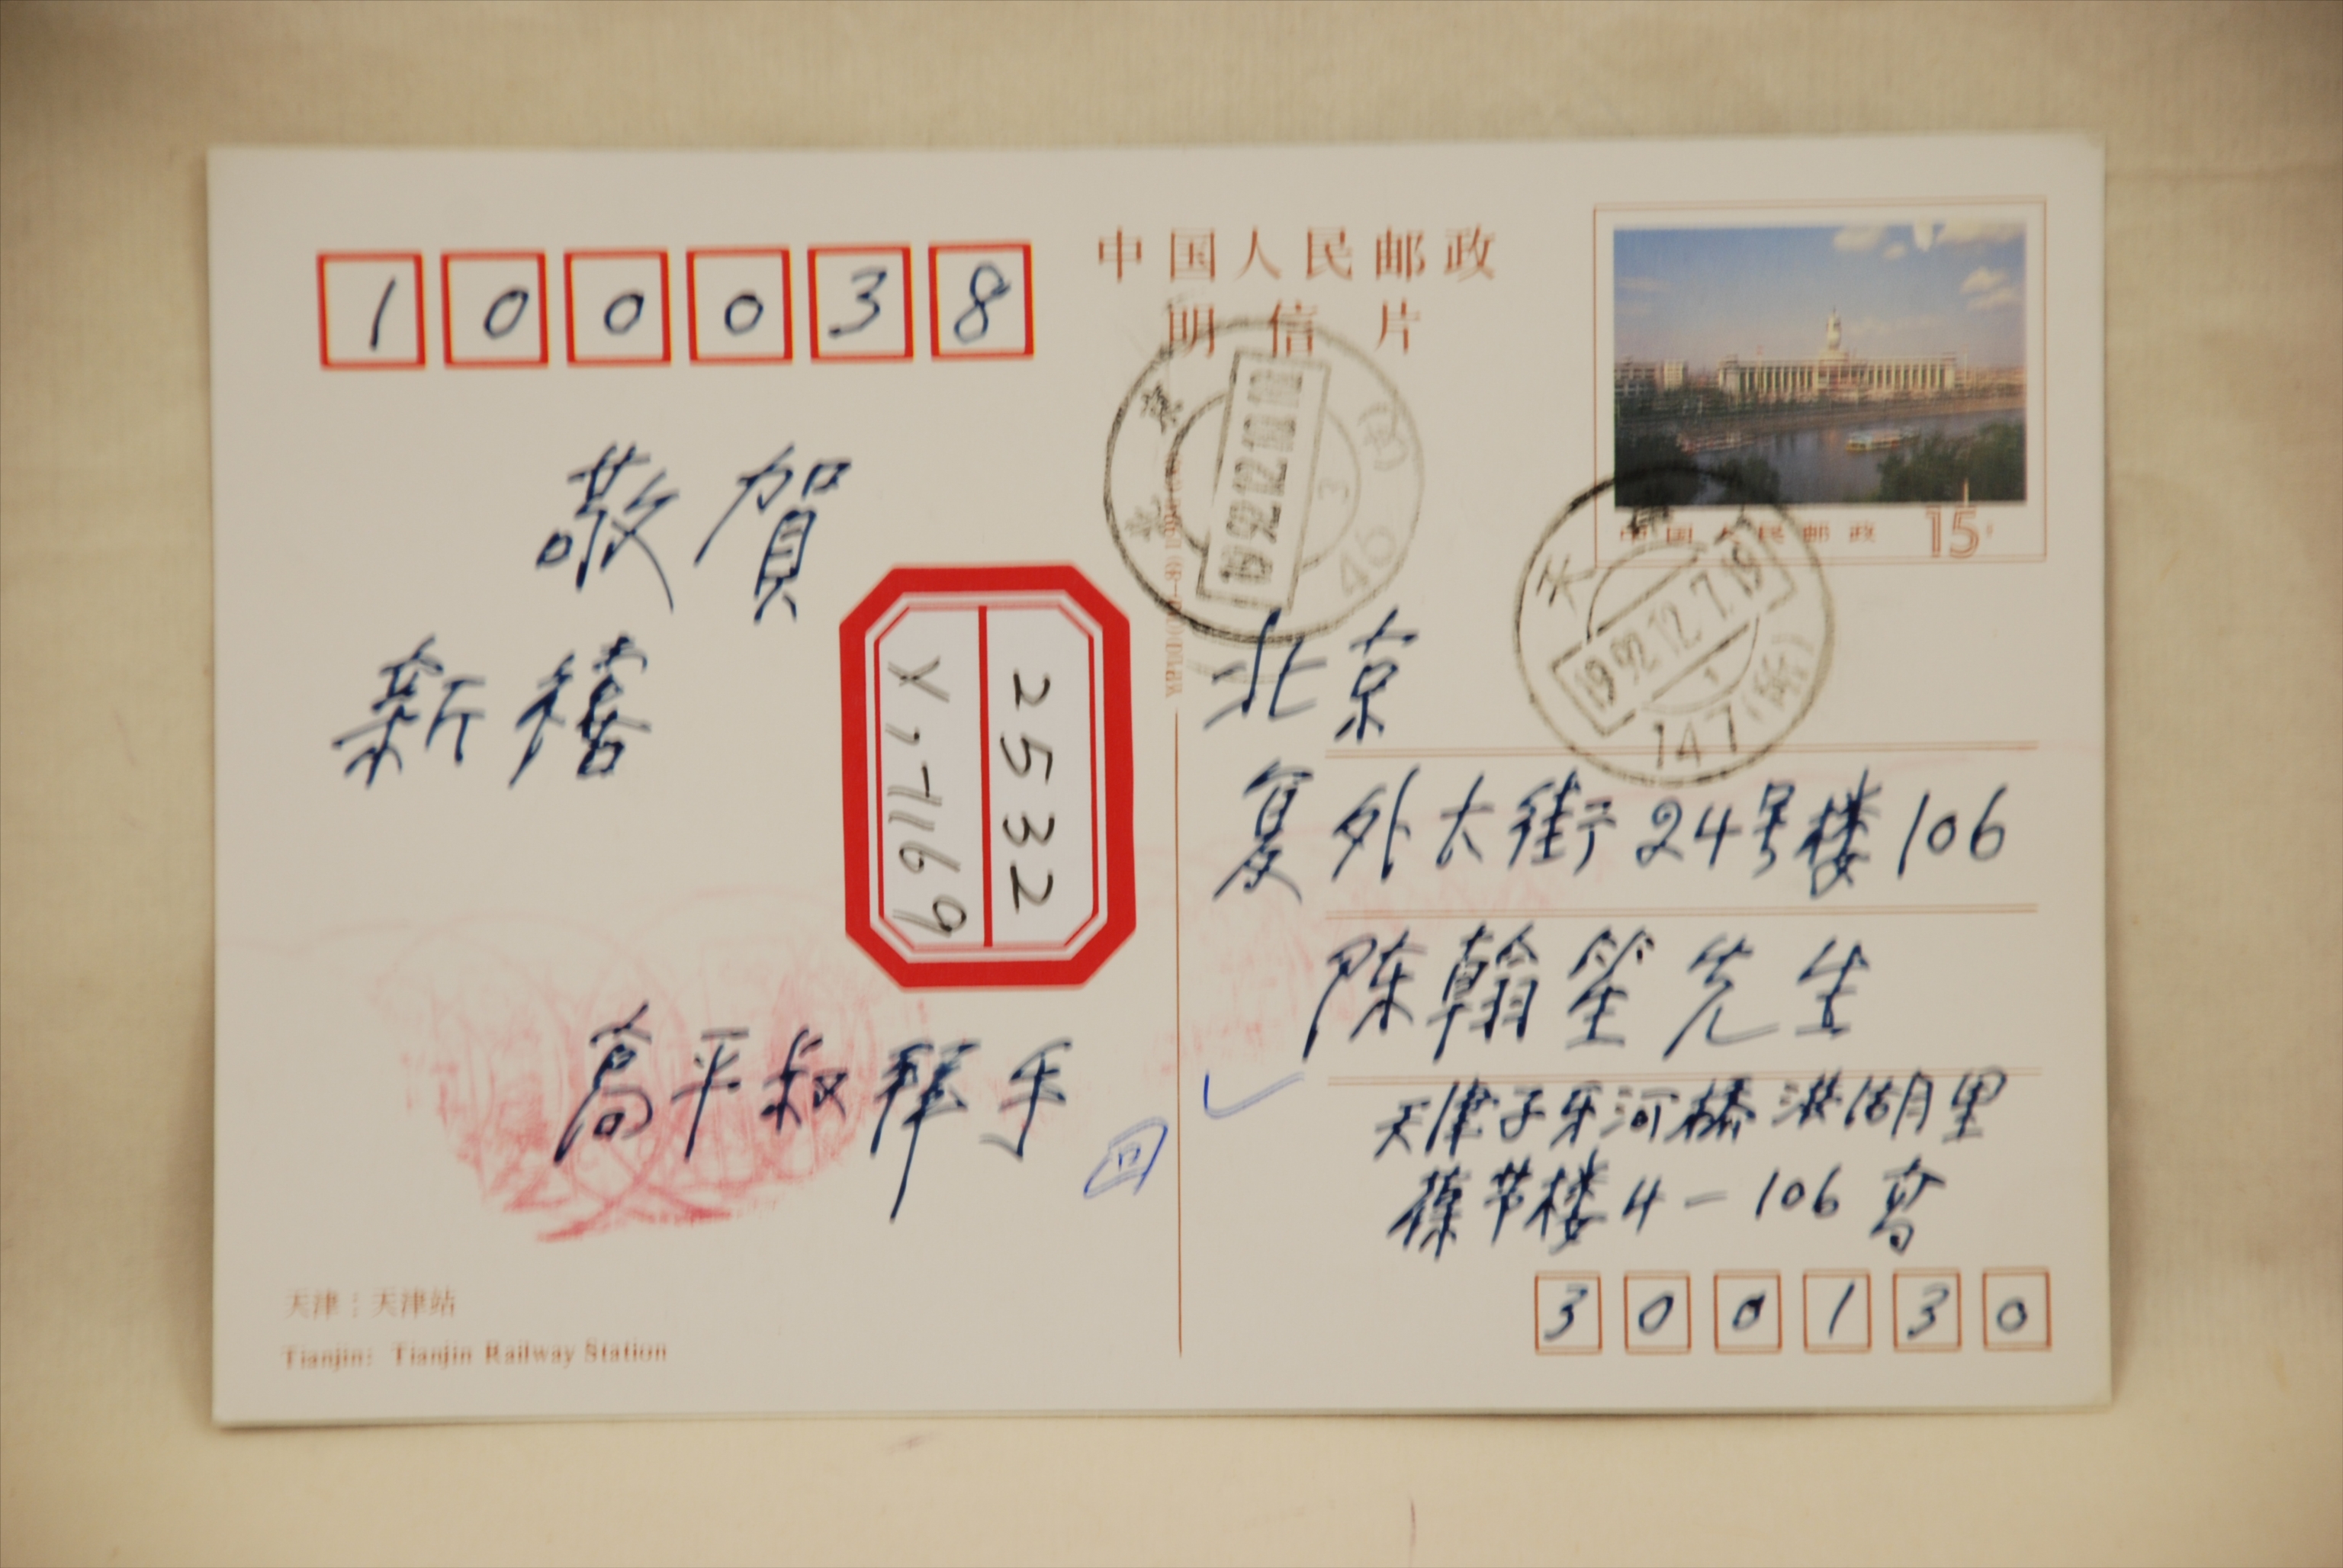 100038
中国人民邮政
明信片
中国人民邮政 15分
北京
1992.12.10.10
3
46
天津
1992.12.7.19
147
敬賀
新禧
高平叔拜手
2532
Y,17169
回
北京
复外大街24号楼106
陈翰笙先生
天津子牙河桥洪湖月里
葆节楼4-106 高
300130
天津:天津站
Tianjin: Tianjin Railway Station